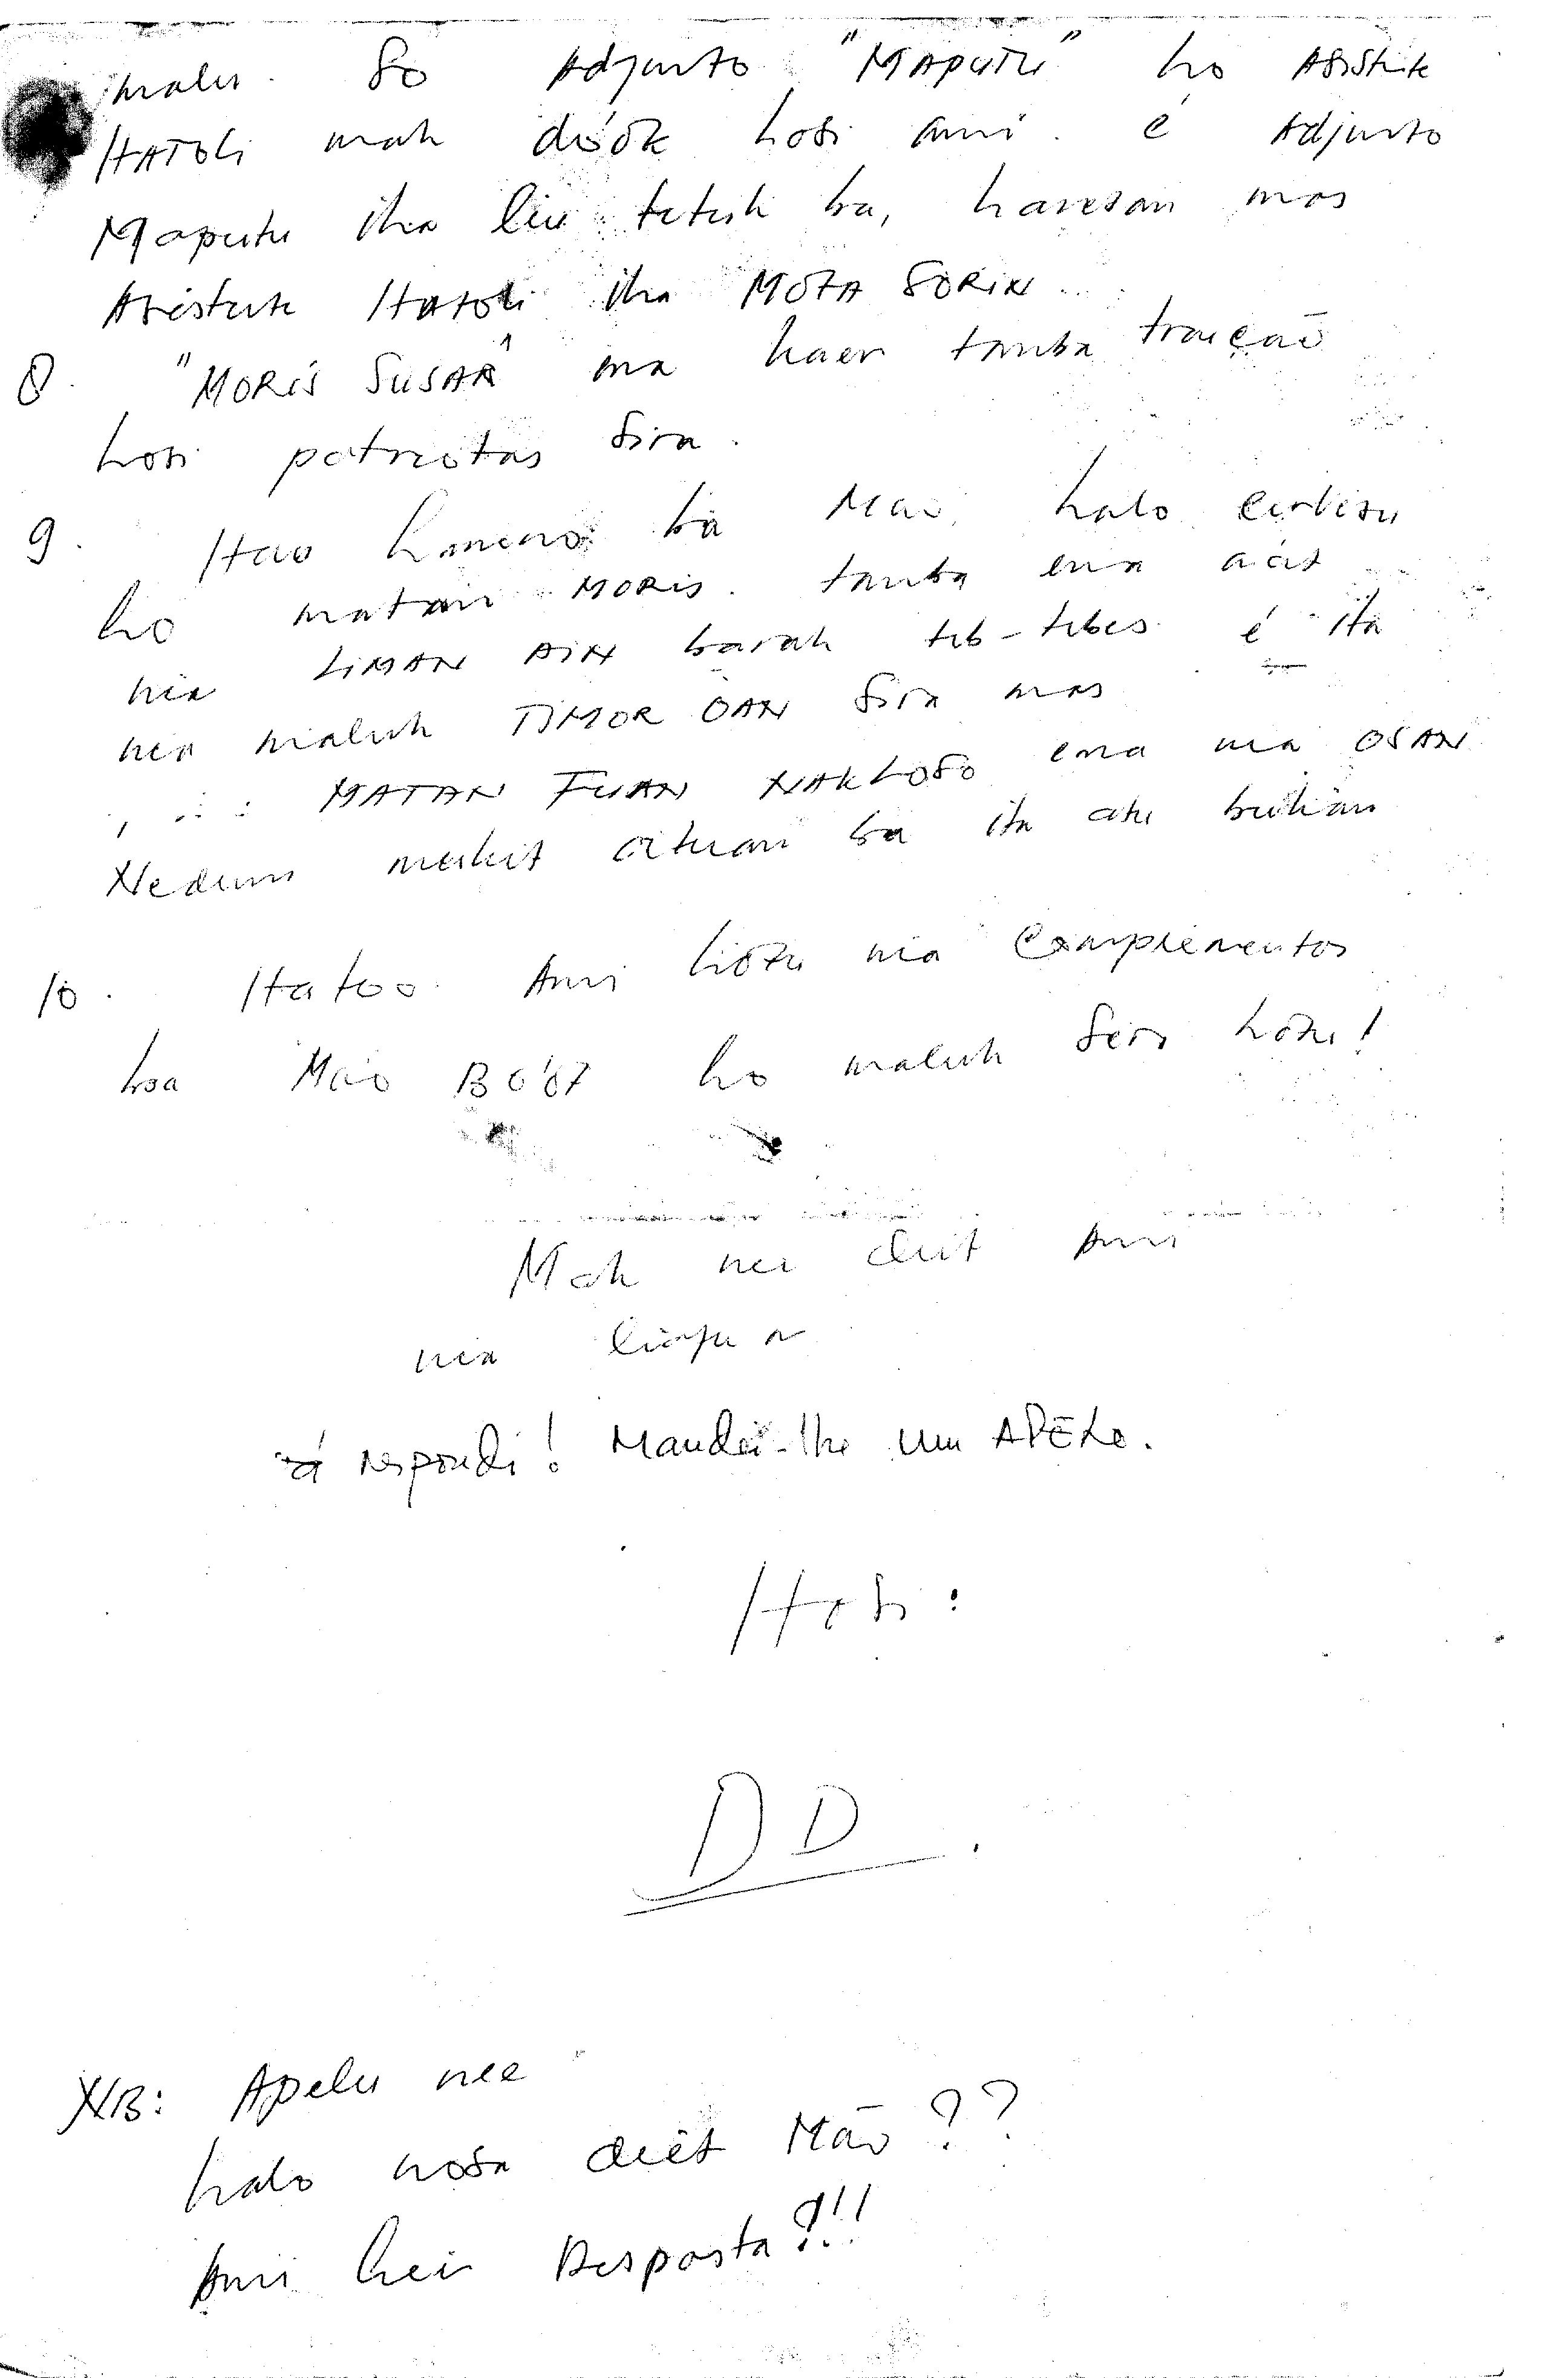 malu. So Adjunto "MAPUTU" ho Asistente
HATOLI mak dóok hosi ami. é Adjunto
Maputu iha liu tetuk ba, havesan mos
Asistente HATOLI iha MOTA SORIN...
8. "MORIS SUSAR" ma kaer tanba traição
hosi patriotas sira.
9. Hau hanoin ba Mau, halo
ho matan MORIS. tanba ema aát
nia LIMAN AIN barak teb-tebes é ita
nia maluk TIMOR OAN sira mos
MATAN FUAN NAKLOSO ema nia OSAN
Nedun matuan ba ita atu
10. Hatoo Ami hotu nia Complementos
ba Mau BO'OT ho maluk sira hotu!
Mak nei deit Ami
nia liafuan
Já respondi! Mandei-lhe um APÊLO.
Hosi:
DD.
NB: Apelu nee
halo nosa deét Mau??
Ami hein Resposta?!!!